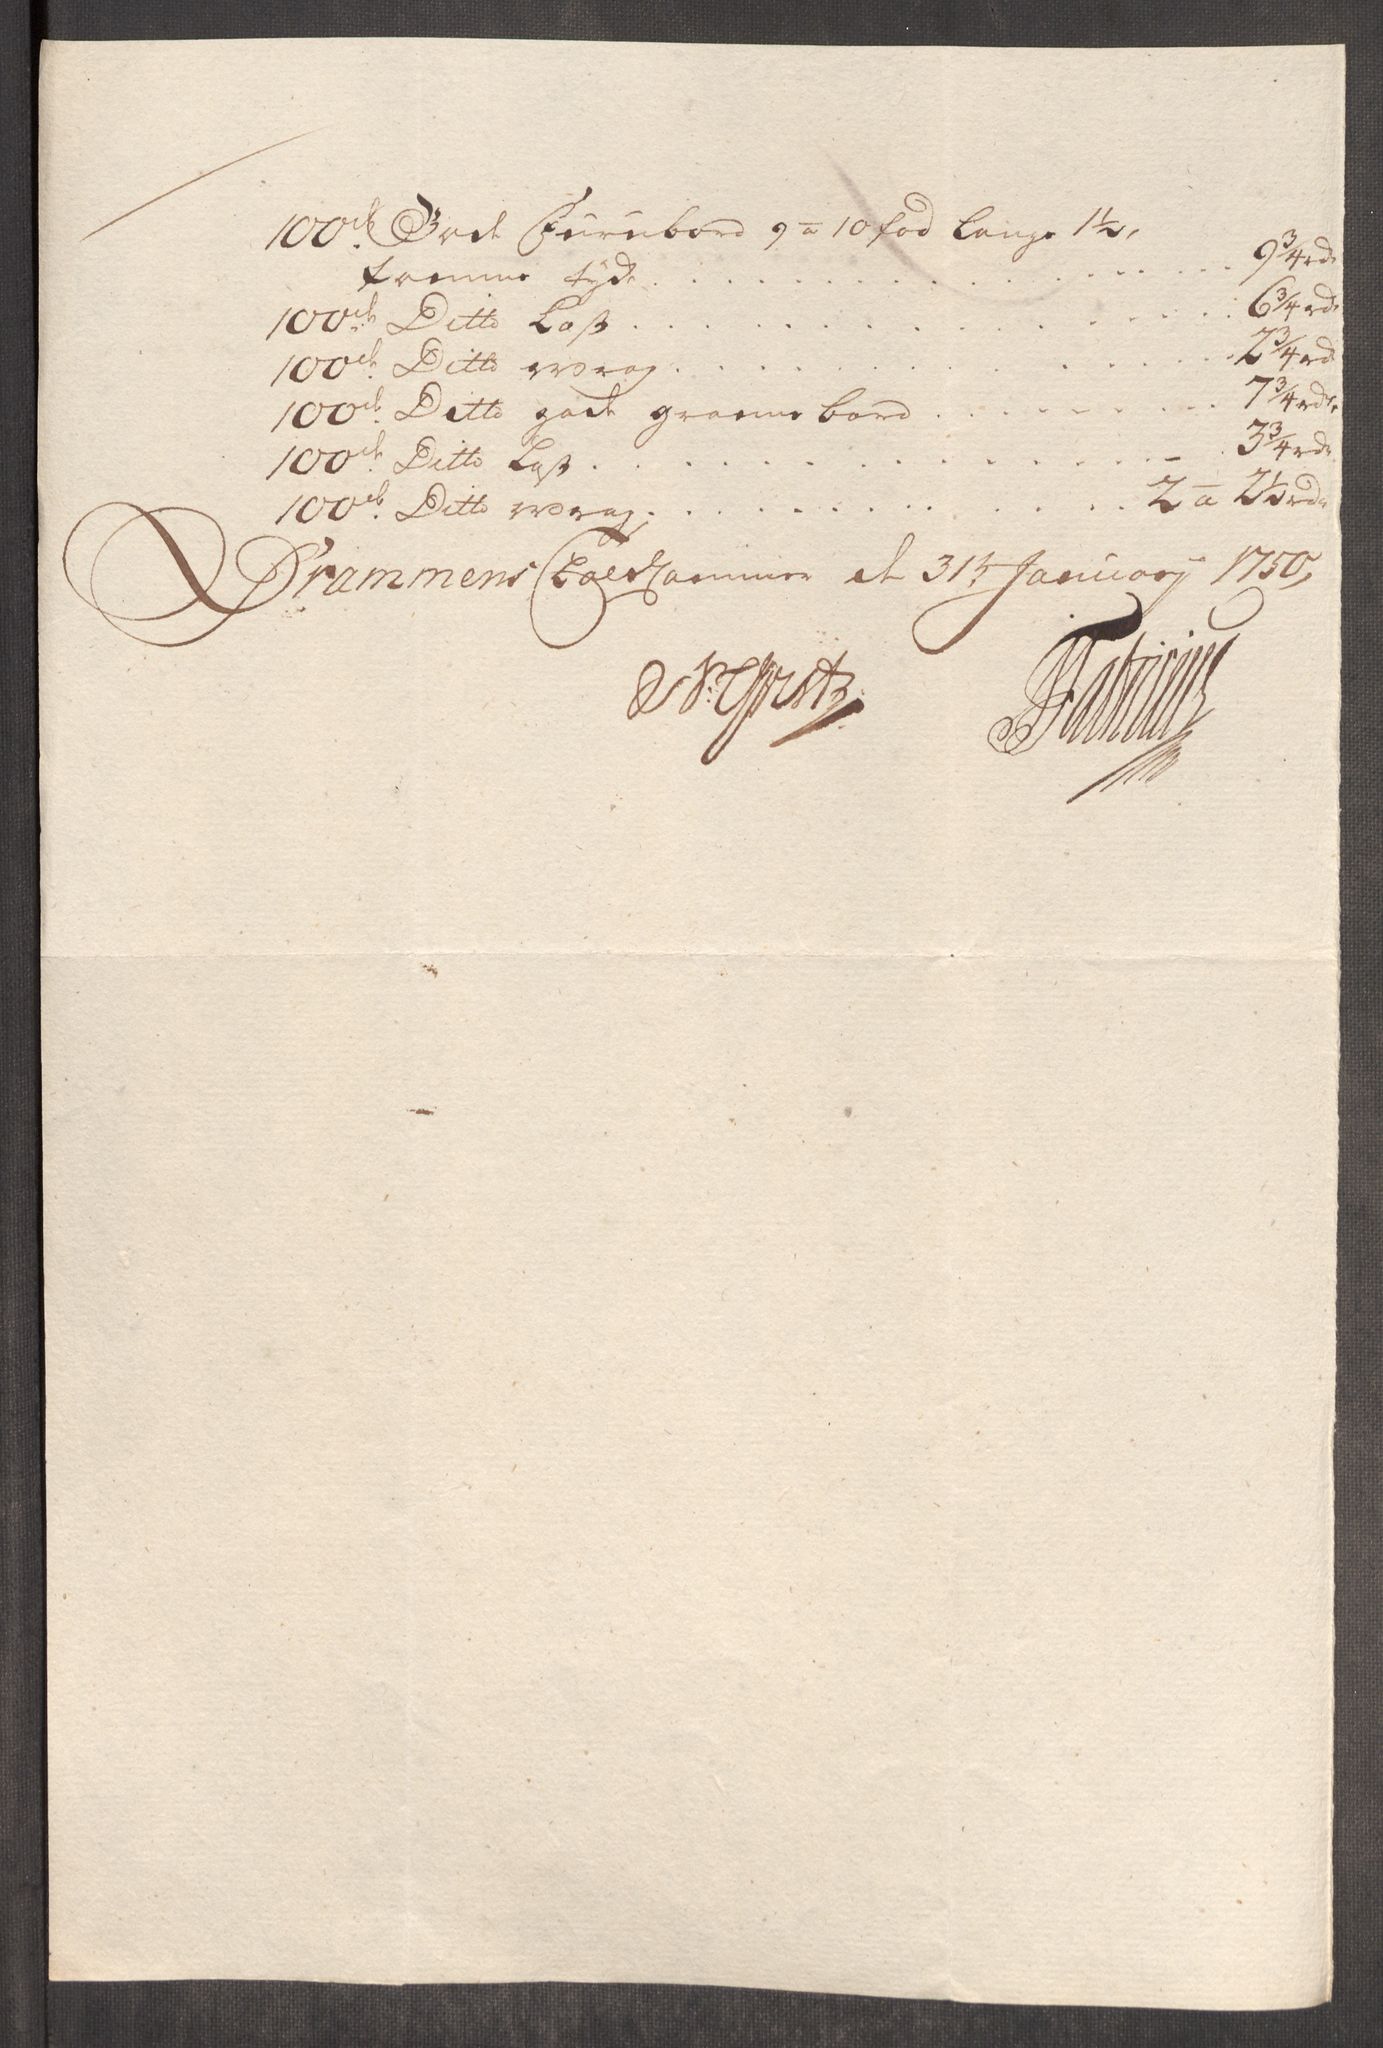 100de. Gode Furubord 9 a 10 fod lange 1 1/2,
tomme tyde . . . . . . . . . . 9 3/4 rdr
100de. Ditto Laß . . . . . . . . . . 6 3/4 rdr
100de. Ditto wrag . . . . . . . . . . 2 3/4 rd
100de. Ditto gode graenne bord . . . . . . . . . . 7 3/4 rdr.
100de. Ditto Laß . . . . . . . . . . 3 3/4 rdr
100de. Ditto wrag . . . . . . . . . . 2 a 2 1/2 rdr
Drammens Told Cammer de 31te January 1750,